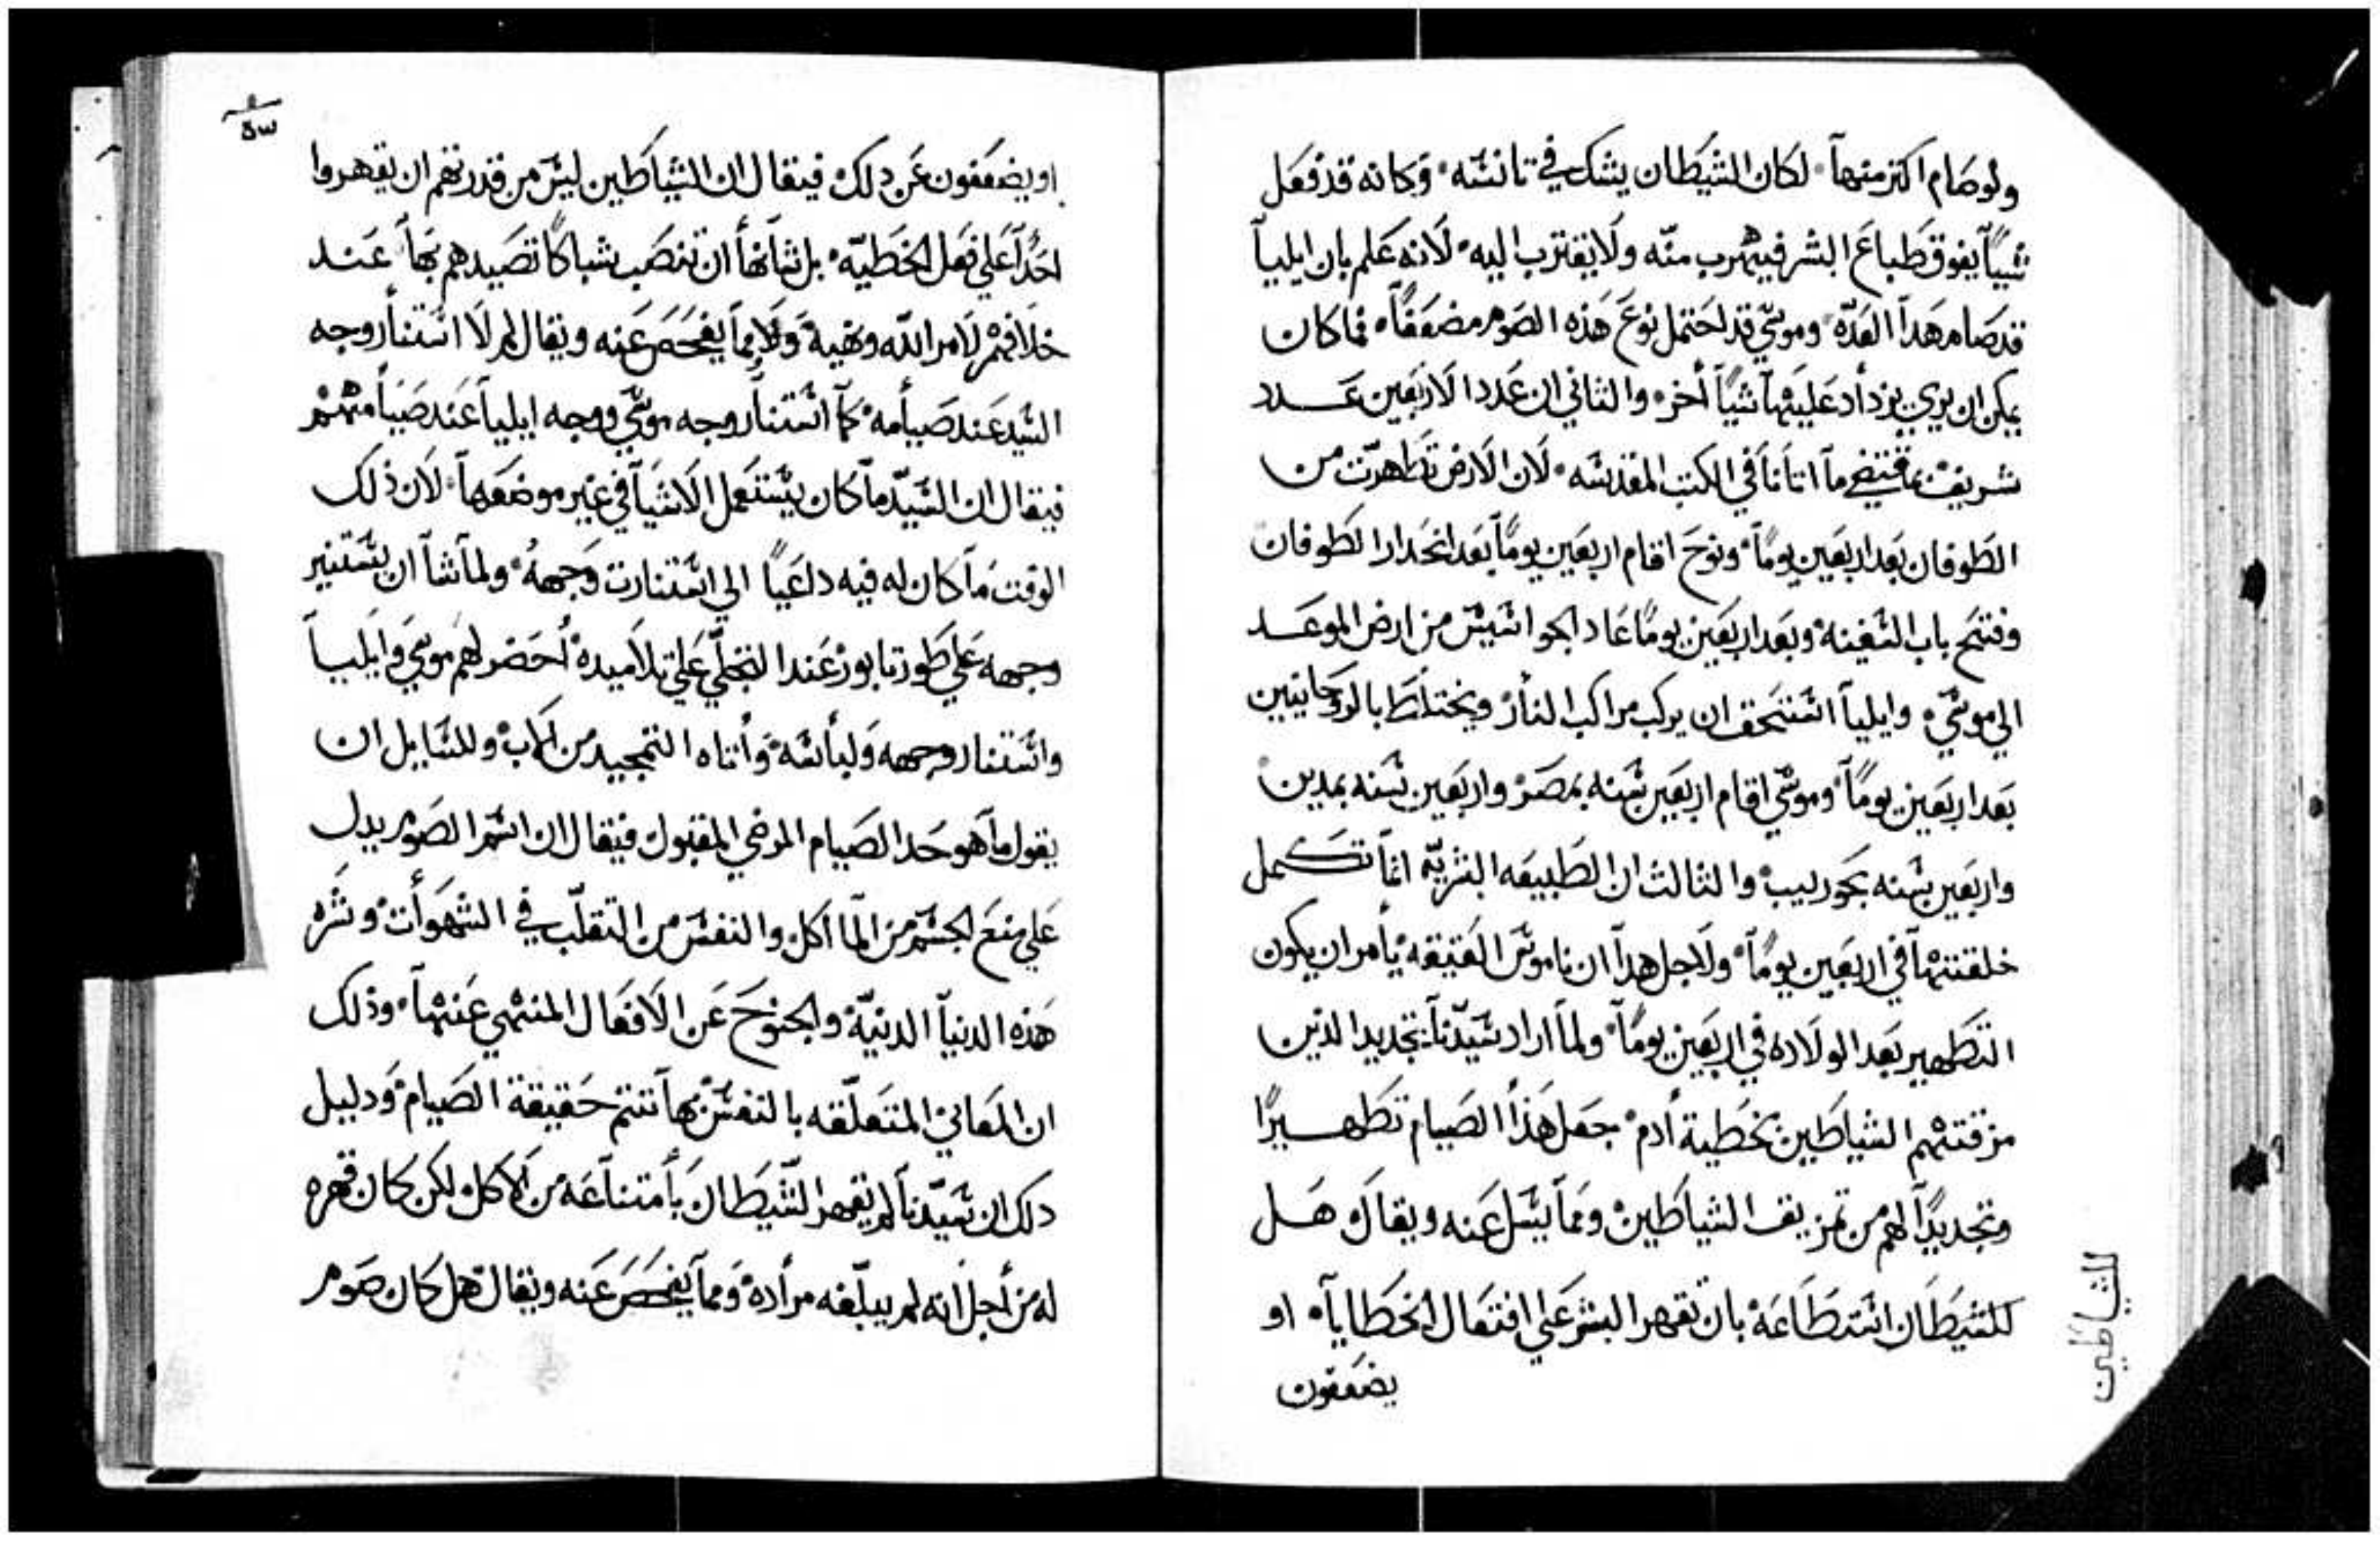 ولوصام اكثر منها لكان الشيطان يشك في تانسه وكانه قد فعل
شياً يفوق طباع البشر فيهرب منه ولا يقترب اليه لانه علم بان ايليا
قد صام هدا العده وموسي قد احتمل نوع هذه الصوم مضعفاً فما كان
يمكن ان يري يزداد عليها شياً اخر والثاني ان عدد الاربعين عدد
شريف بمقتضي ما اتانا في الكتب المقدسه لان الارض تطهرت من
الطوفان بعد اربعين يوماً ونوح اقام اربعين يوماً بعد انحدار الطوفان
وفتح باب السفينه وبعد اربعين يوماً عاد الجواسيس من ارض الموعد
الي موسي وايليا استحق ان يركب مراكب النار ويختلط بالروحانيين
بعد اربعين يوماً وموسي اقام اربعين سنه بمصر واربعين سنه بمدين
واربعين سنه بحوريب والثالث ان الطبيعه البشريه انما تكمل
خلقتها في اربعين يوماً ولاجل هدا ان ناموس العتيقه يأمر ان يكون
التطهير بعد الولاده في اربعين يوماً ولما اراد سيدنا تجديد الذين
مزقتهم الشياطين بخطية ادم جعل هذا الصيام تطهيراً
وتجديداً لهم من تمزيف الشياطين ومما يسل عنه ويقال هل
للشيطان استطاعه بان تقهر البشر علي افتعال الخطايا او
يضعفون
للشياطين
٥٣
او يضعفون عن دلك فيقال ان الشياطين ليس من قدرتهم ان يقهروا
احداً علي فعل الخطيه بل شانها ان تنصب شباكاً تصيدهم بها عند
خلافهم لامر الله ونهيه ومما يفحص عنه ويقال لم لا استنار وجه
السيد عند صيامه كما استنار وجه موسي ووجه ايليا عند صيامهم
فيقال ان السيد ما كان يستعمل الاشيا في غير موضعها لان ذلك
الوقت ما كان له فيه داعياً الي استنارت وجهه ولما شا ان يستنير
وجهه علي طور تابور عند التجلي علي تلاميده احضر لهم موسي وايليا
واستنار وجهه ولباسه واتاه التمجيد من الاب وللسايل ان
يقول ما هو حد الصيام المرضي المقبول فيقال ان اسم الصوم يدل
علي منع الجسم من الماكل والنفس من التقلب في الشهوات وشره
هذه الدنيا الدنيه والجنوح عن الافعال المنهي عنها وذلك
ان المعاني المتعلقه بالنفس بها تتم حقيقة الصيام ودليل
دلك ان سيدنا لم يقهر الشيطان بامتناعه من الاكل ولكن كان قهره
له من اجل انه لم يبلغه مراده ومما يفحص عنه ويقال هل كان صوم